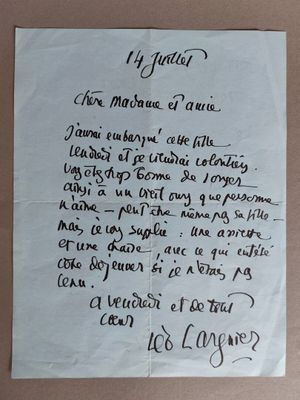 14 Juillet
Chère Madame et amie
J'aurai embarqué cette fille
vendredi et je viendrai volontiers.
Vous êtes trop bonne de songer
ainsi à un vieil ours que personne
n'aime – peut-être même pas sa fille –
mais je vous supplie : une assiette
et une chaise avec ce qui
votre déjeuner si je n'étais pas
venu.
A vendredi et de tout
cœur
Léo Larguier